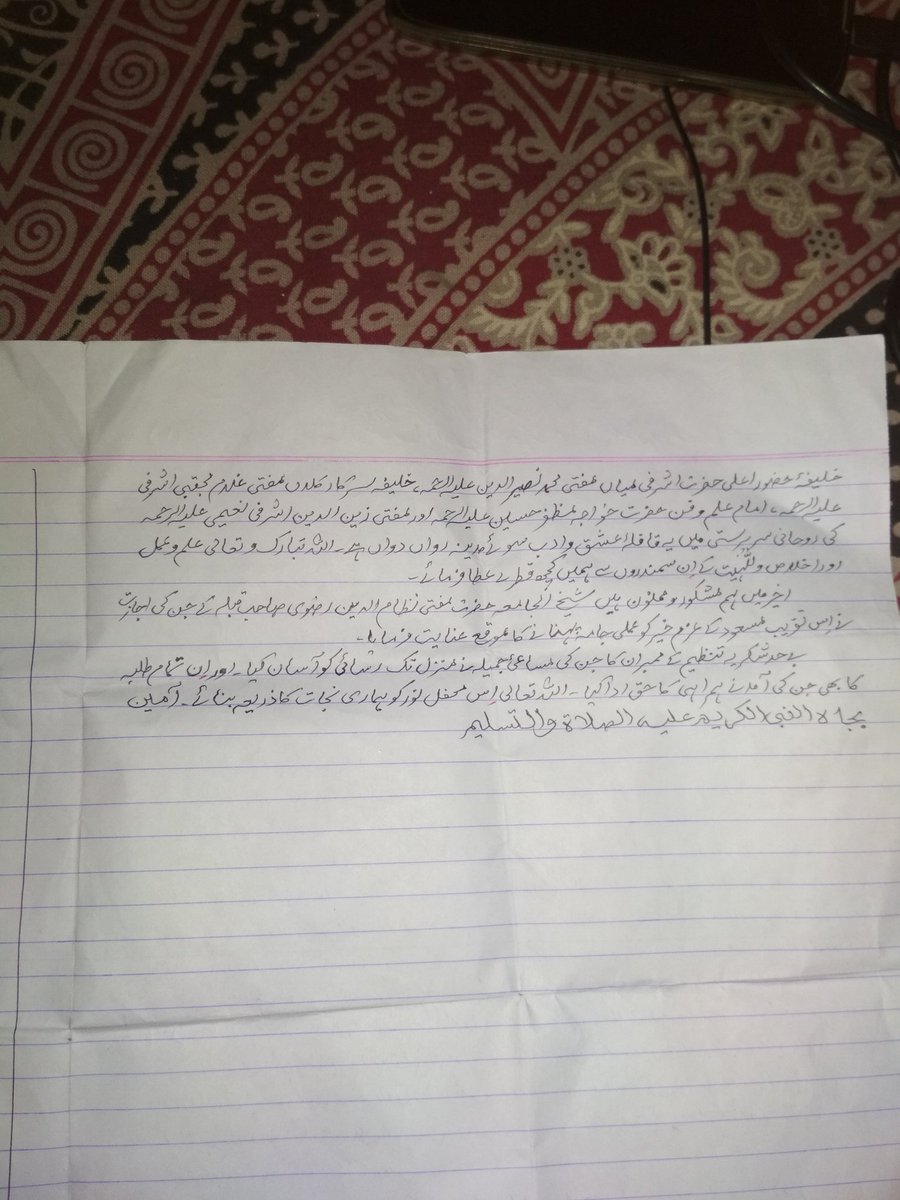 خلیفۂ حضور اعلی حضرت اشرفی میاں مفتی محمد نصیر الدین علیہ الرحمہ، خلیفہ سرکار کلاں مفتی غلام مجتبی اشرفی
علیہ الرحمہ، امام علم و فن حضرت خواجہ مظفر حسین علیہ الرحمہ اور مفتی زین الدین اشرفی نعیمی علیہ الرحمہ
کی روحانی سرپرستی میں یہ قافلۂ عشق و ادب سوئے مدینہ رواں دواں ہے۔ اللہ تبارک و تعالی علم و عمل
اور اخلاص و للّٰہیت کے اِن سمندروں سے ہمیں کچھ قطرے عطا فرمائے۔
اخیر میں ہم مشکور و ممنون ہیں شیخ الجامعہ حضرت مفتی نظام الدین رضوی صاحب قبلہ کے جن کی اجازت
نے اِس تقریب مسعود کے عزم خیر کو عملی جامہ پہنانے کا موقع عنایت فرمایا۔
بے حد شکریہ تنظیم کے ممبران کا جن کی مساعئ جمیلہ نے منزل تک رسائی کو آسان کیا۔ اور اِن تمام طلبہ
کا بھی جن کی آمد نے ہم کا حق ادا کیا۔ اللہ تعالی اِس محفل نور کو ہماری نجات کا ذریعہ بنائے۔ آمین
بجاہ النبی الکریم علیہ الصلاۃ والتسلیم